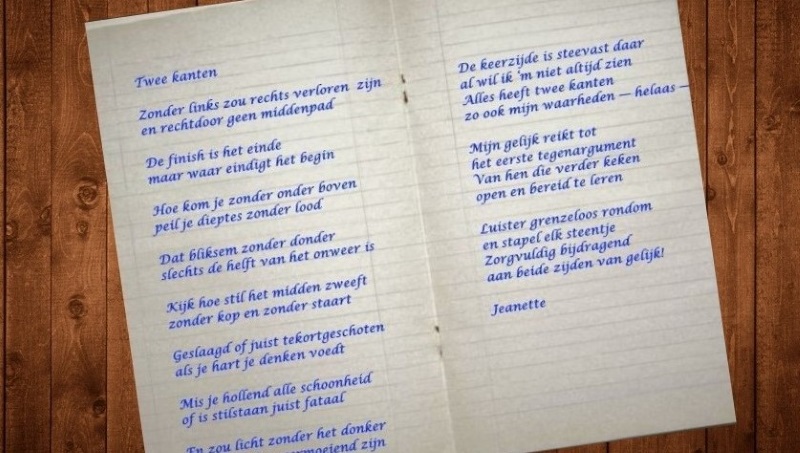 Twee kanten
Zonder links zou rechts verloren zijn
en rechtdoor geen middenpad
De finish is het einde
maar waar eindigt het begin
Hoe kom je zonder onder boven
peil je dieptes zonder lood
Dat bliksem zonder donder
slechts de helft van het onweer is
Kijk hoe stil het midden zweeft
zonder kop en zonder staart
Geslaagd of juist tekortgeschoten
als je hart je denken voedt
Mis je hollend alle schoonheid
of is stilstaan juist fataal
En zou licht zonder het donker
zijn
De keerzijde is steevast daar
al wil ik 'm niet altijd zien
Alles heeft twee kanten
zo ook mijn waarheden — helaas —
Mijn gelijk reikt tot
het eerste tegenargument
Van hen die verder keken
open en bereid te leren
Luister grenzeloos rondom
en stapel elk steentje
Zorgvuldig bijdragend
aan beide zijden van gelijk!
Jeanette